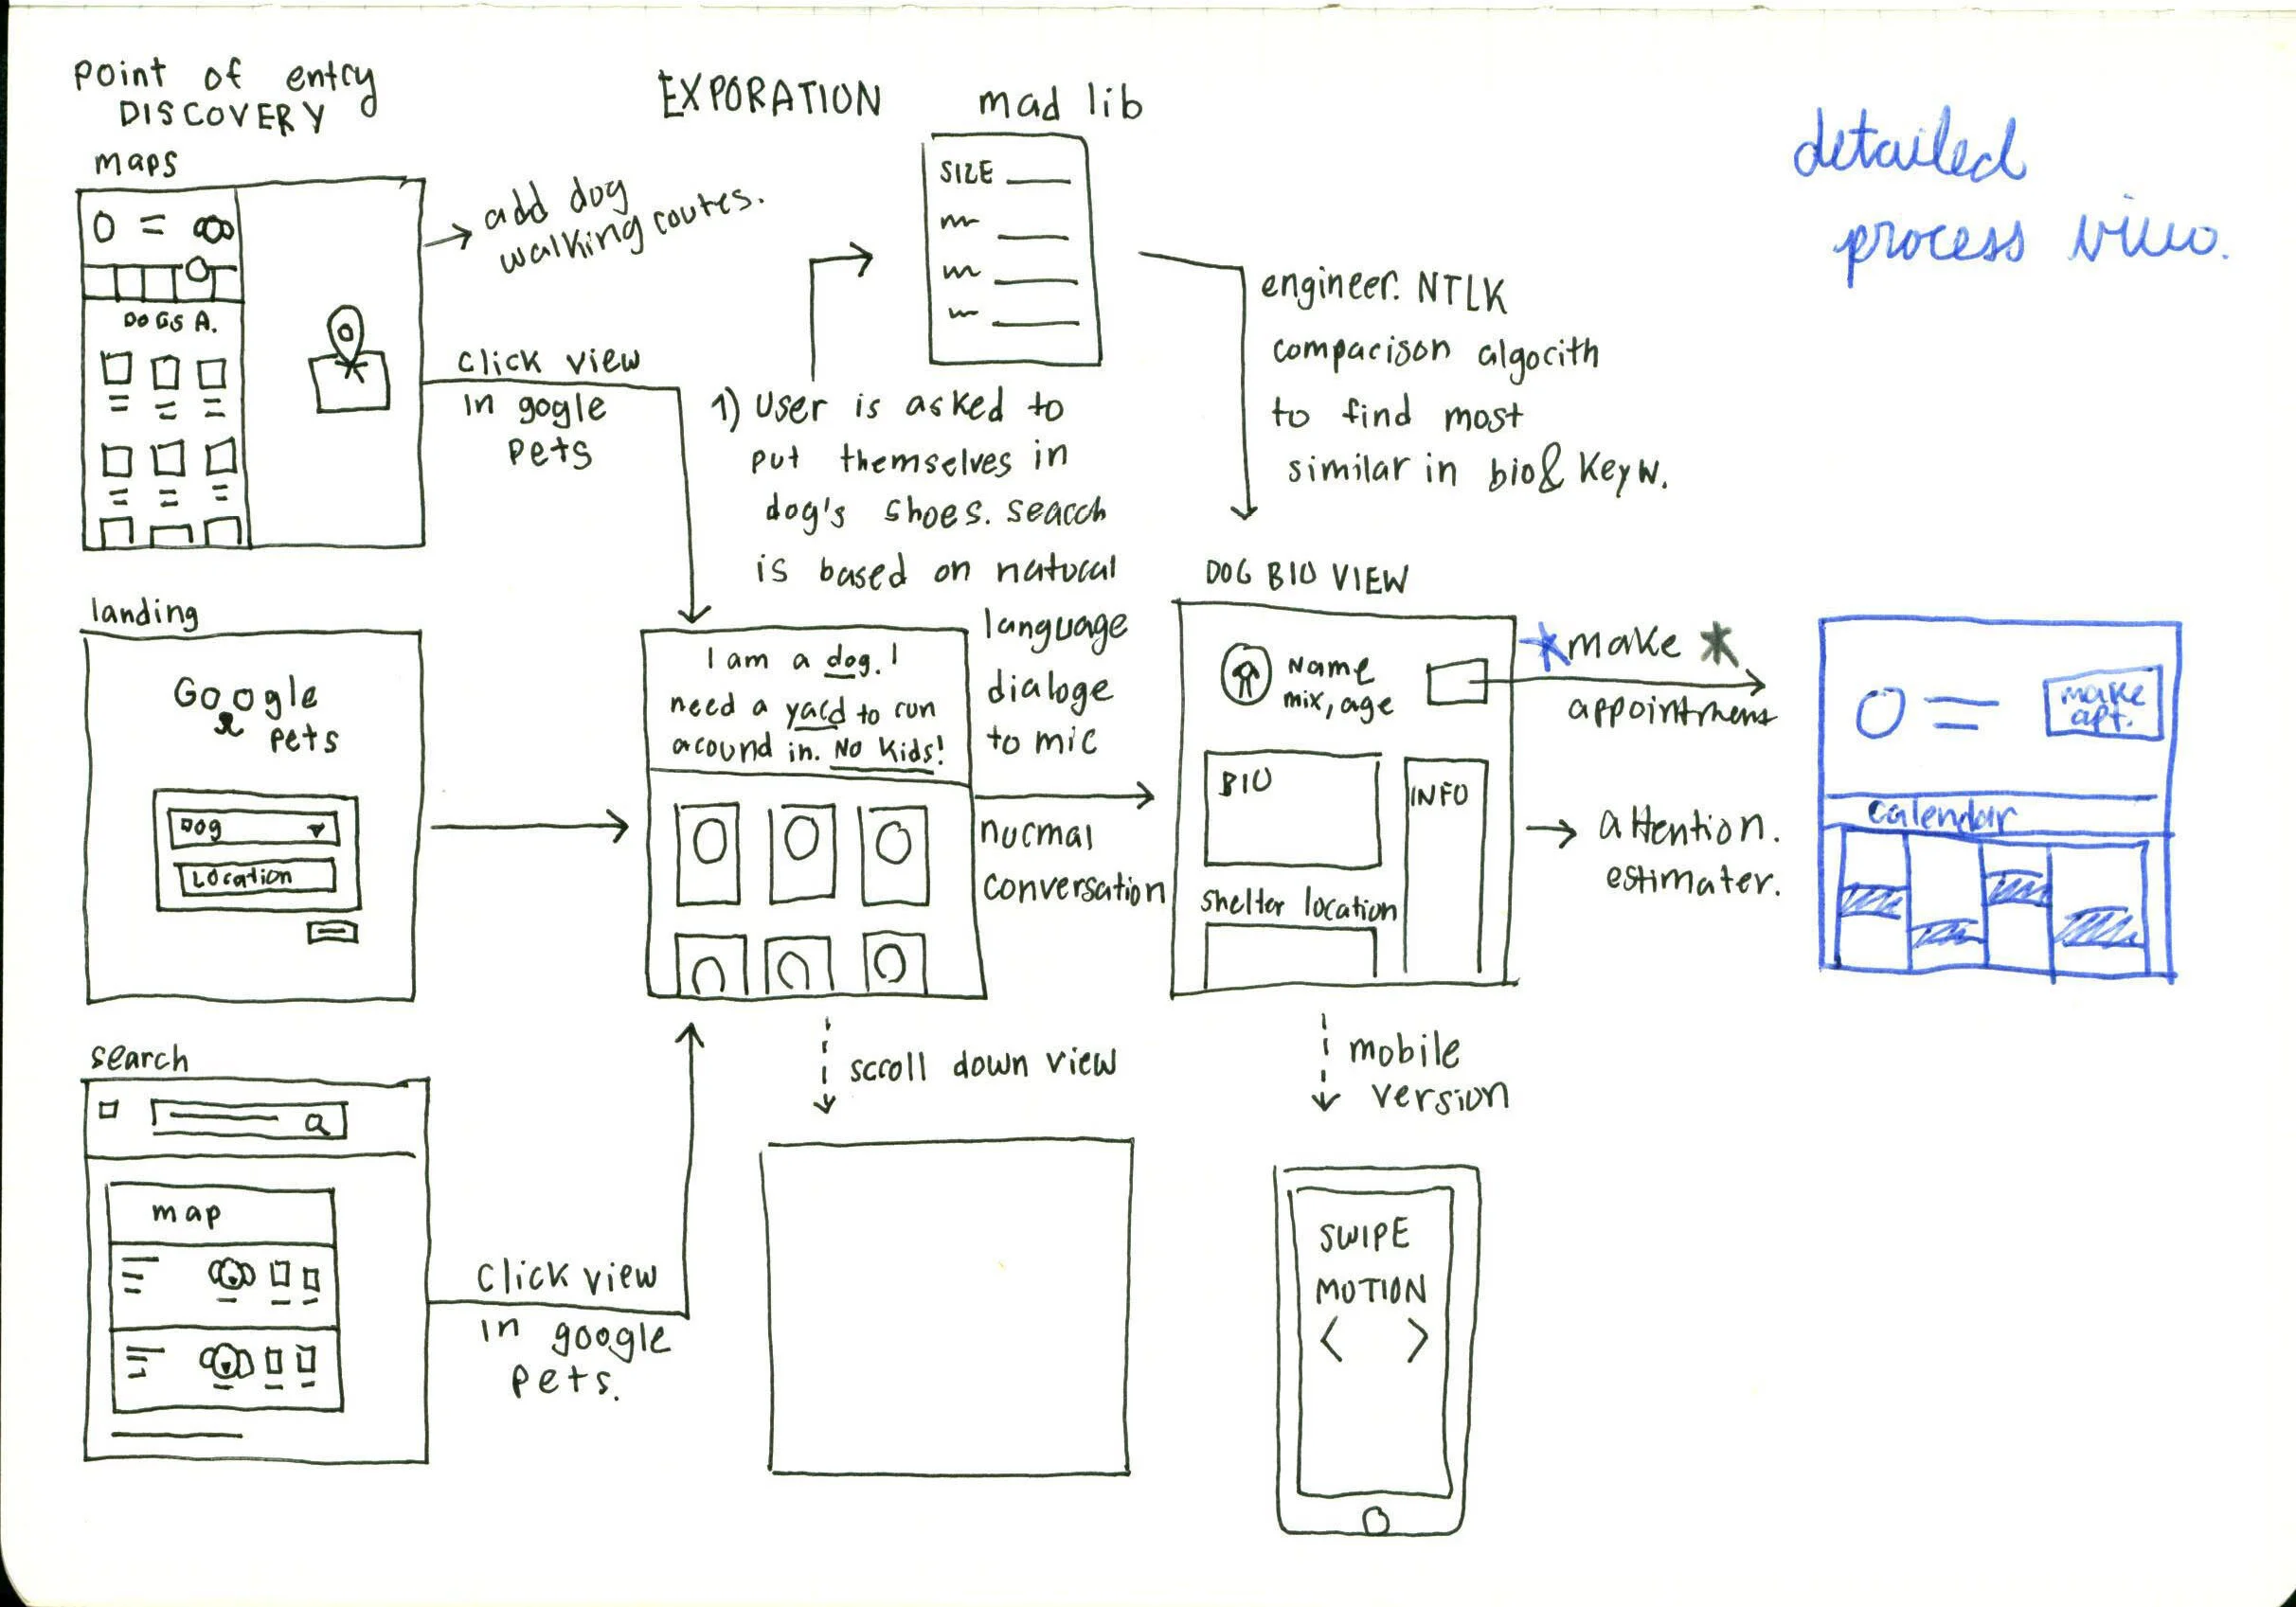 point of entry
DISCOVERY
maps
DOGS A.
→ add dog
walking routes.
click view
in gogle
pets
landing
Google
pets
Dog
Location
search
map
click view
in google
pets.
EXPORATION
mad lib
SIZE
1) user is asked to
put themselves in
dog's shoes. search
is based on natural
language
dialoge
to mic
normal
conversation
I am a dog. I
need a yard to run
around in. No kids!
scroll down view
engineer. NTLK
comparison algorith
to find most
similar in bio & keyw.
DOG BIO VIEW
Name
mix, age
BIO
INFO
shelter location
mobile
version
SWIPE
MOTION
< >
*make *
appointment
→ attention.
estimater.
detailed
process view.
make
apt.
calendar